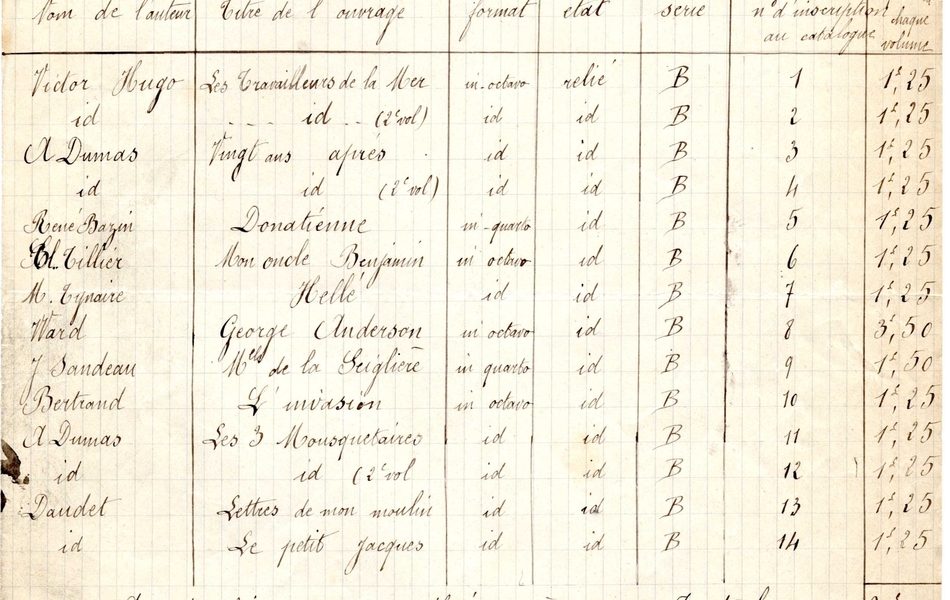 Nom de l'auteur Titre de l'ouvrage format etat serie n° d'inscription au catalogue chaque volume
Victor Hugo Les Travailleurs de la Mer in-octavo relié B 1 1f,25
id - - - id - - (2e vol) id id B 2 1f,25
A Dumas Vingt ans après id id B 3 1f,25
id id (2e vol) id id B 4 1f,25
René Bazin Donatienne in-quarto id B 5 1f,25
Cl. Tillier Mon oncle Benjamin in octavo id B 6 1f,25
M. Tynaire Hellé id id B 7 1f,25
Ward George Anderson in octavo id B 8 3f,50
J Sandeau Melle de la Seiglière in quarto id B 9 1f,50
Bertrand L'invasion in octavo id B 10 1f,25
A Dumas Les 3 Mousquetaires id id B 11 1f,25
id id (2e vol id id B 12 1f,25
Daudet Lettres de mon moulin id id B 13 1f,25
id Le petit Jacques id id B 14 1f,25